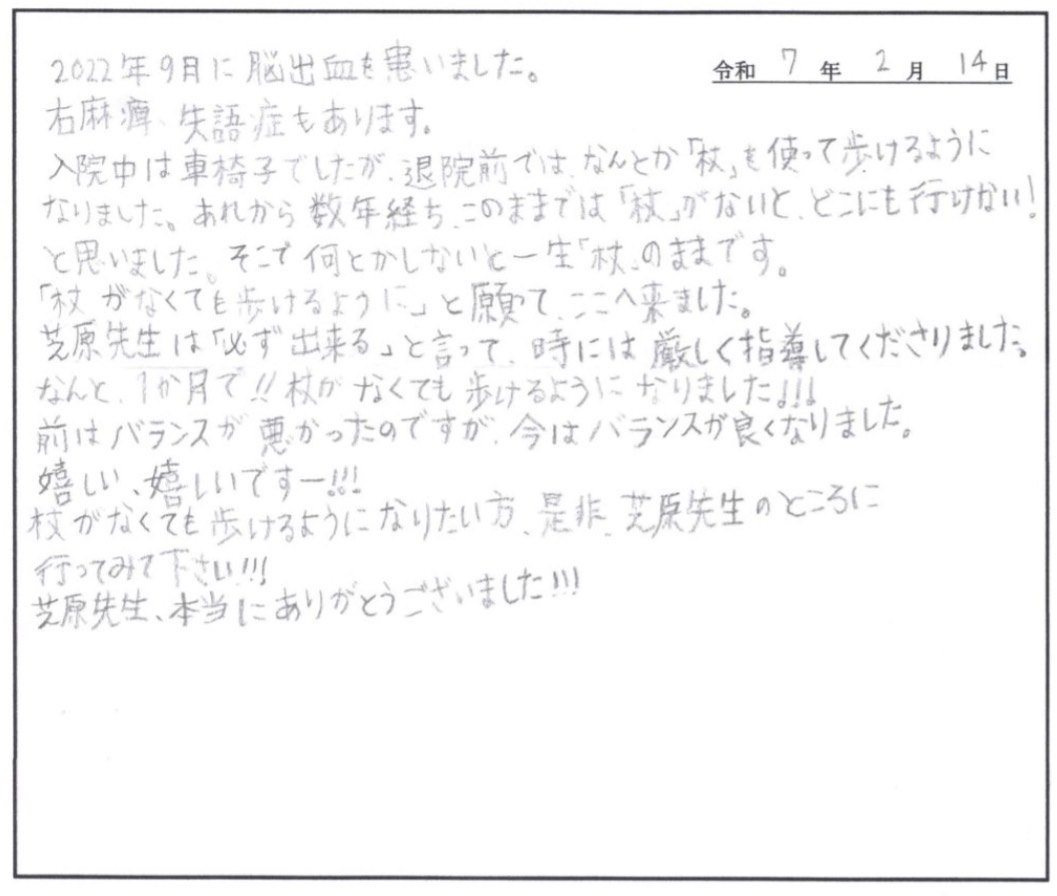 令和 7 年 2 月 14 日
2022年9月に脳出血を患いました。
右麻痺、失語症もあります。
入院中は車椅子でしたが、退院前では、なんとか「杖」を使って歩けるように
なりました。あれから数年経ち、このままでは「杖」がないと、どこにも行けない!
と思いました。そこで何とかしないと一生「杖」のままです。
「杖がなくても歩けるように」と願って、ここへ来ました。
芝原先生は「必ず出来る」と言って、時には厳しく指導してくださりました。
なんと、1か月で!!杖がなくても歩けるようになりました!!!
前はバランスが悪かったのですが、今はバランスが良くなりました。
嬉しい、嬉しいですー!!!
杖がなくても歩けるようになりたい方、是非、芝原先生のところに
行ってみて下さい!!!
芝原先生、本当にありがとうございました!!!